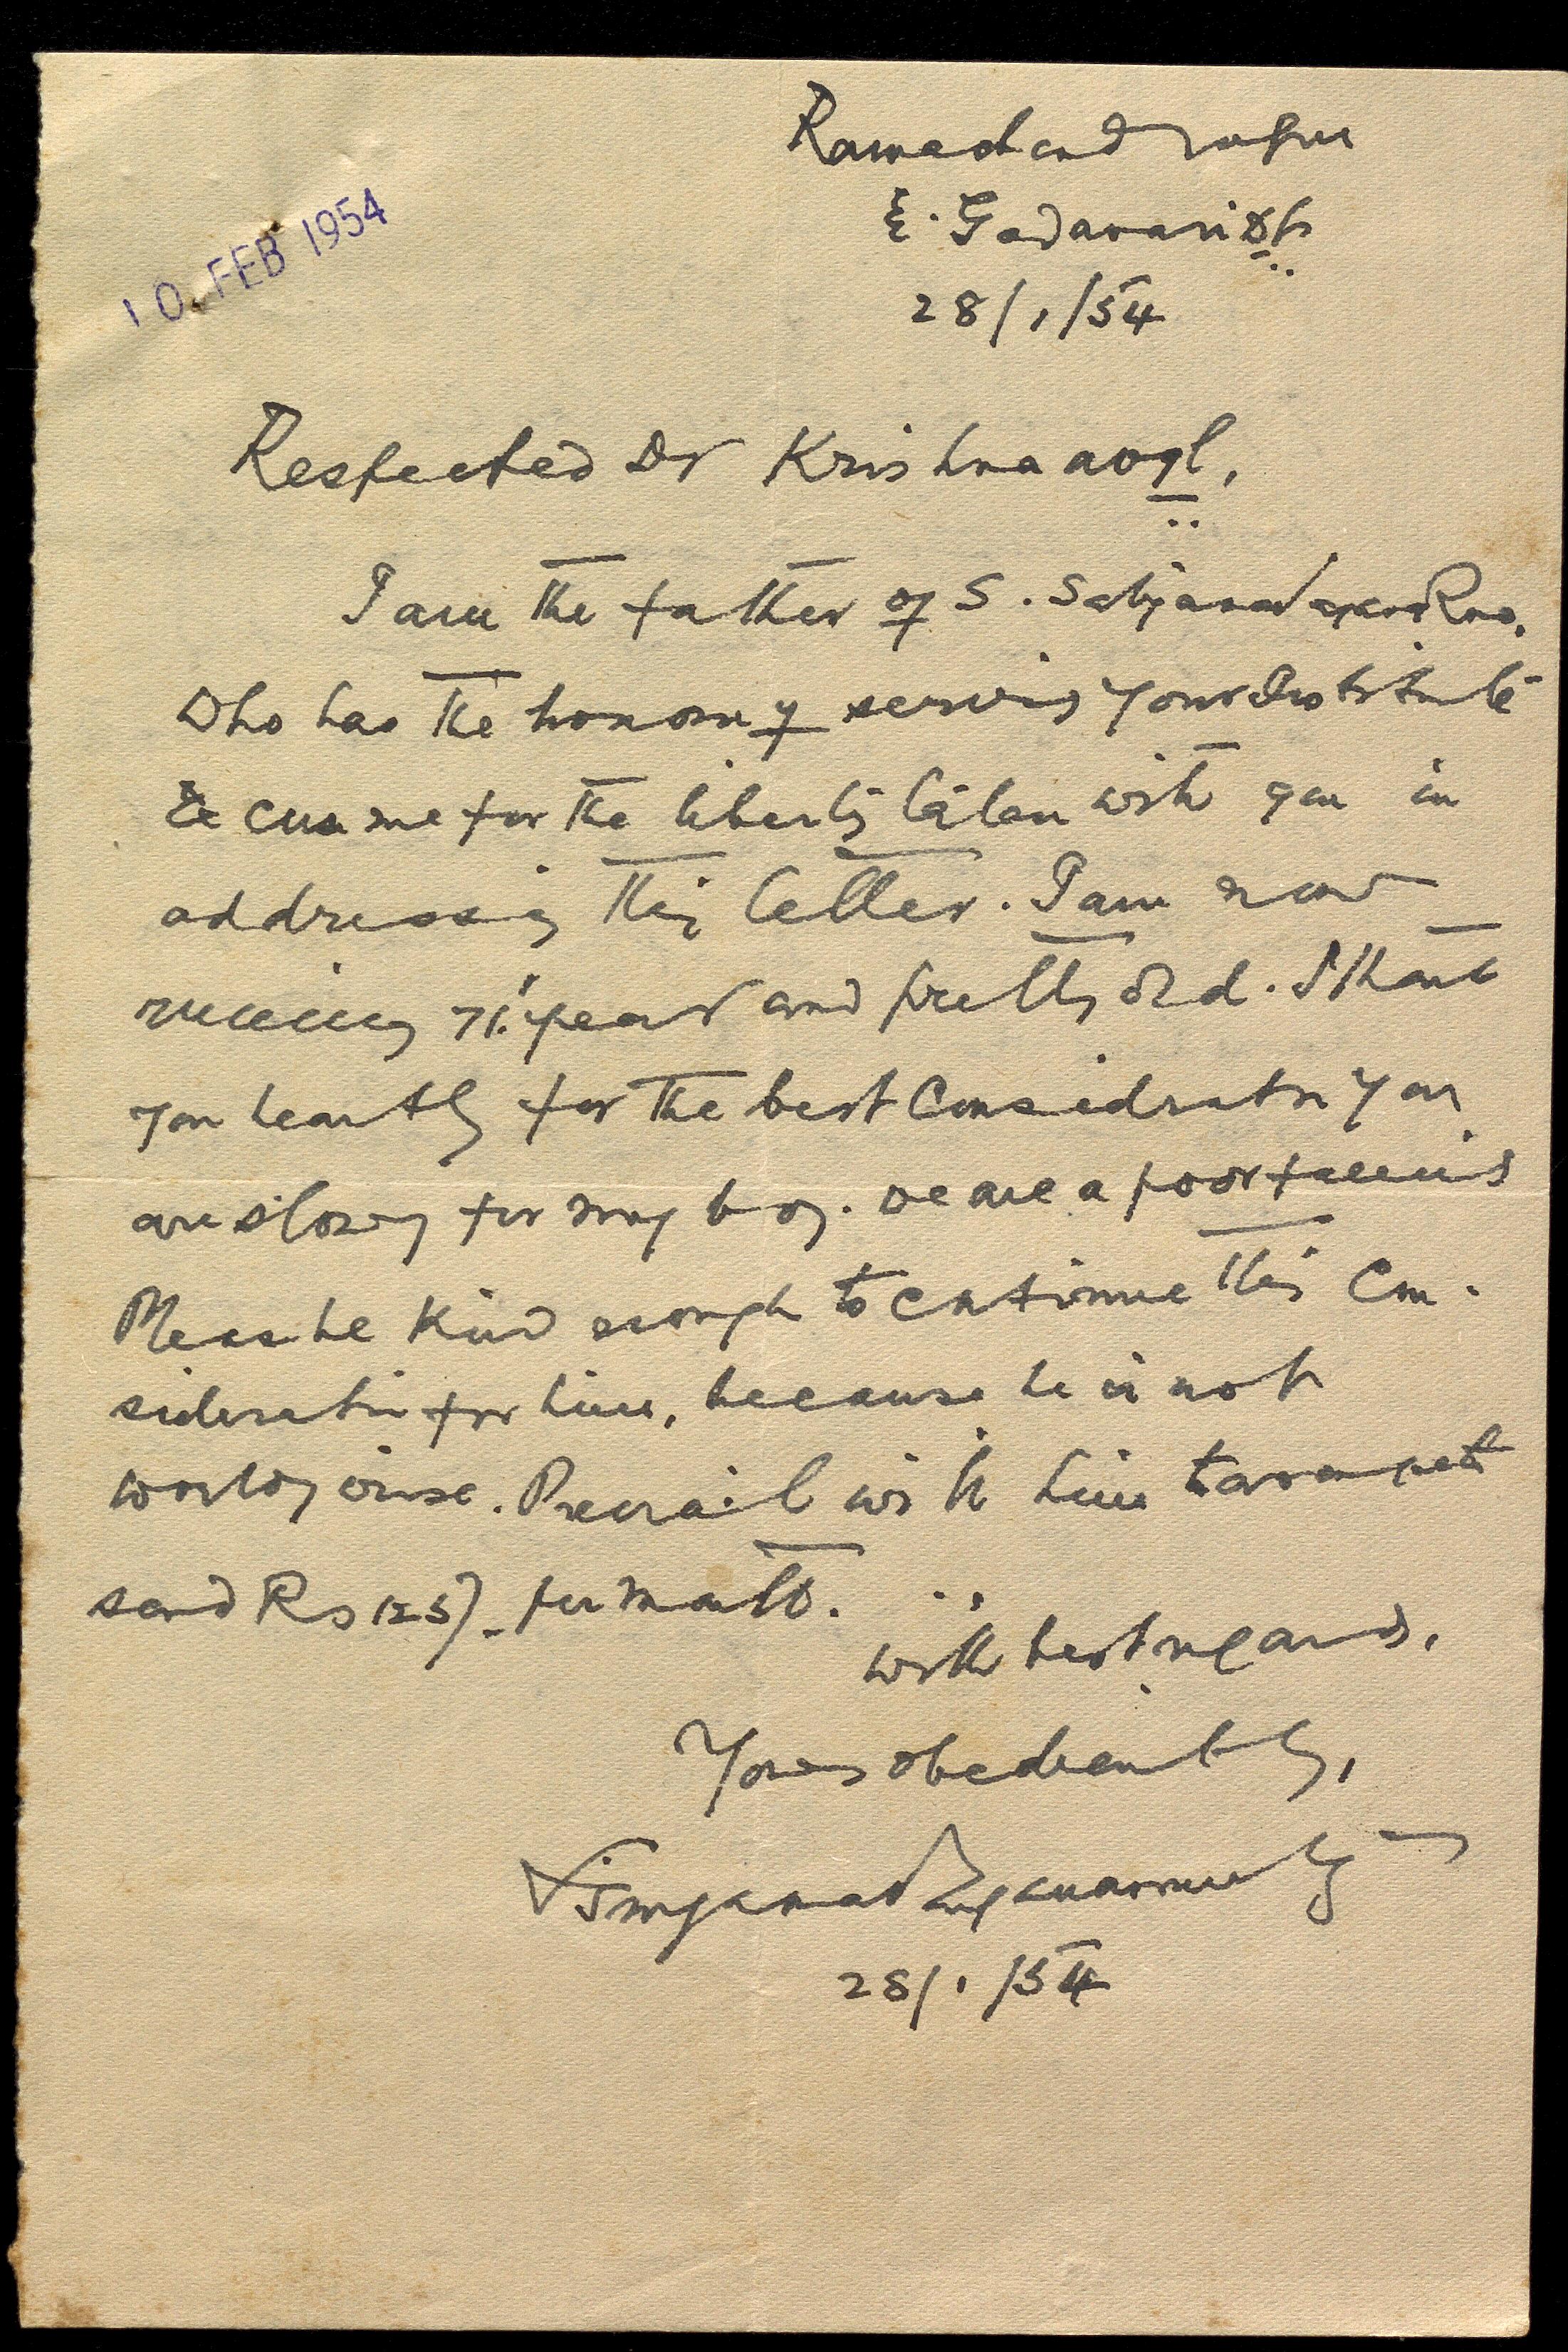 10 FEB 1954
Ramachandrapur
E. Godavari Dt
28/1/54
Respected Dr Krishna
I am the father of S. Satyanarayana Rao,
who has the honour of serving your Institute
Excuse me for the liberty taken with you in
addressing this letter. I am now
running 71 year and pretty old. I thank
you heartily for the best consideration you
are showing for my boy. We are a poor family
Please be kind enough to continue this con-
sideration for him, because he is not
worldly wise. Prevail with him to
send Rs 125/- per month.
With best regards,
Yours obediently,
28/1/54